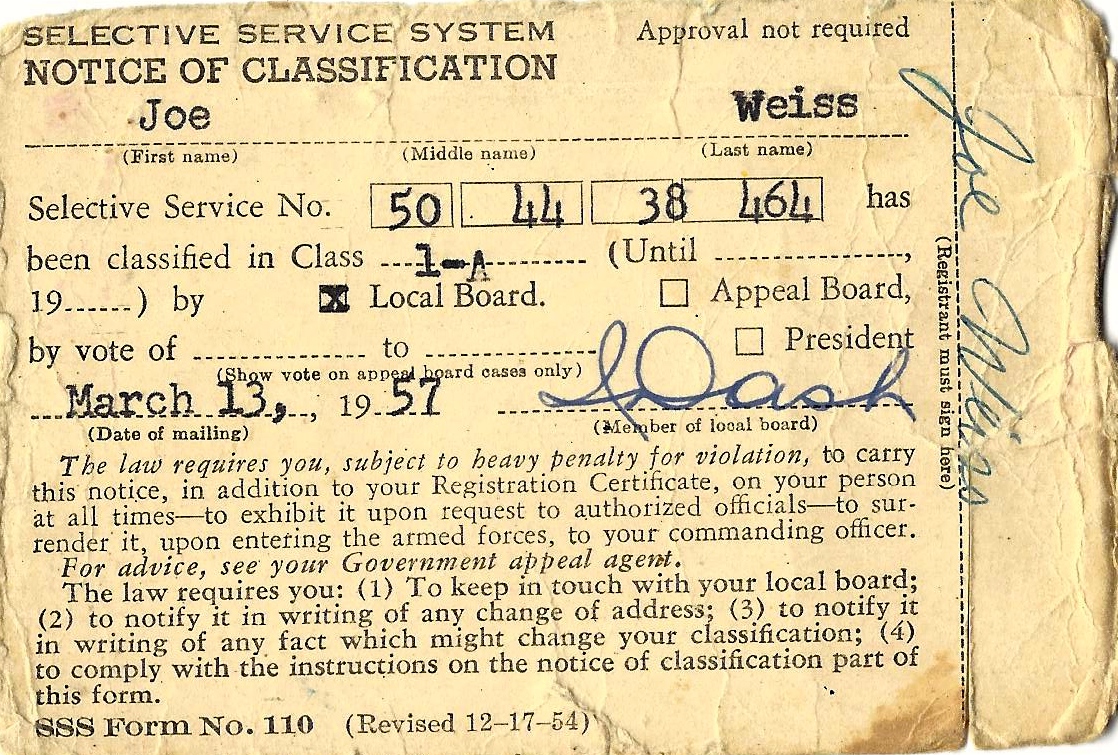 SELECTIVE SERVICE SYSTEM Approval not required
NOTICE OF CLASSIFICATION
Joe Weiss
(First name) (Middle name) (Last name)
Selective Service No. 50 44 38 464 has
been classified in Class 1-A (Until ,
19 ) by X Local Board. Appeal Board,
by vote of to President
(Show vote on appeal board cases only)
March 13, , 19 57 Dash
(Date of mailing) (Member of local board)
The law requires you, subject to heavy penalty for violation, to carry
this notice, in addition to your Registration Certificate, on your person
at all times—to exhibit it upon request to authorized officials—to sur-
render it, upon entering the armed forces, to your commanding officer.
For advice, see your Government appeal agent.
The law requires you: (1) To keep in touch with your local board;
(2) to notify it in writing of any change of address; (3) to notify it
in writing of any fact which might change your classification; (4)
to comply with the instructions on the notice of classification part of
this form.
SSS Form No. 110 (Revised 12-17-54)
(Registrant must sign here)
Joe Weiss